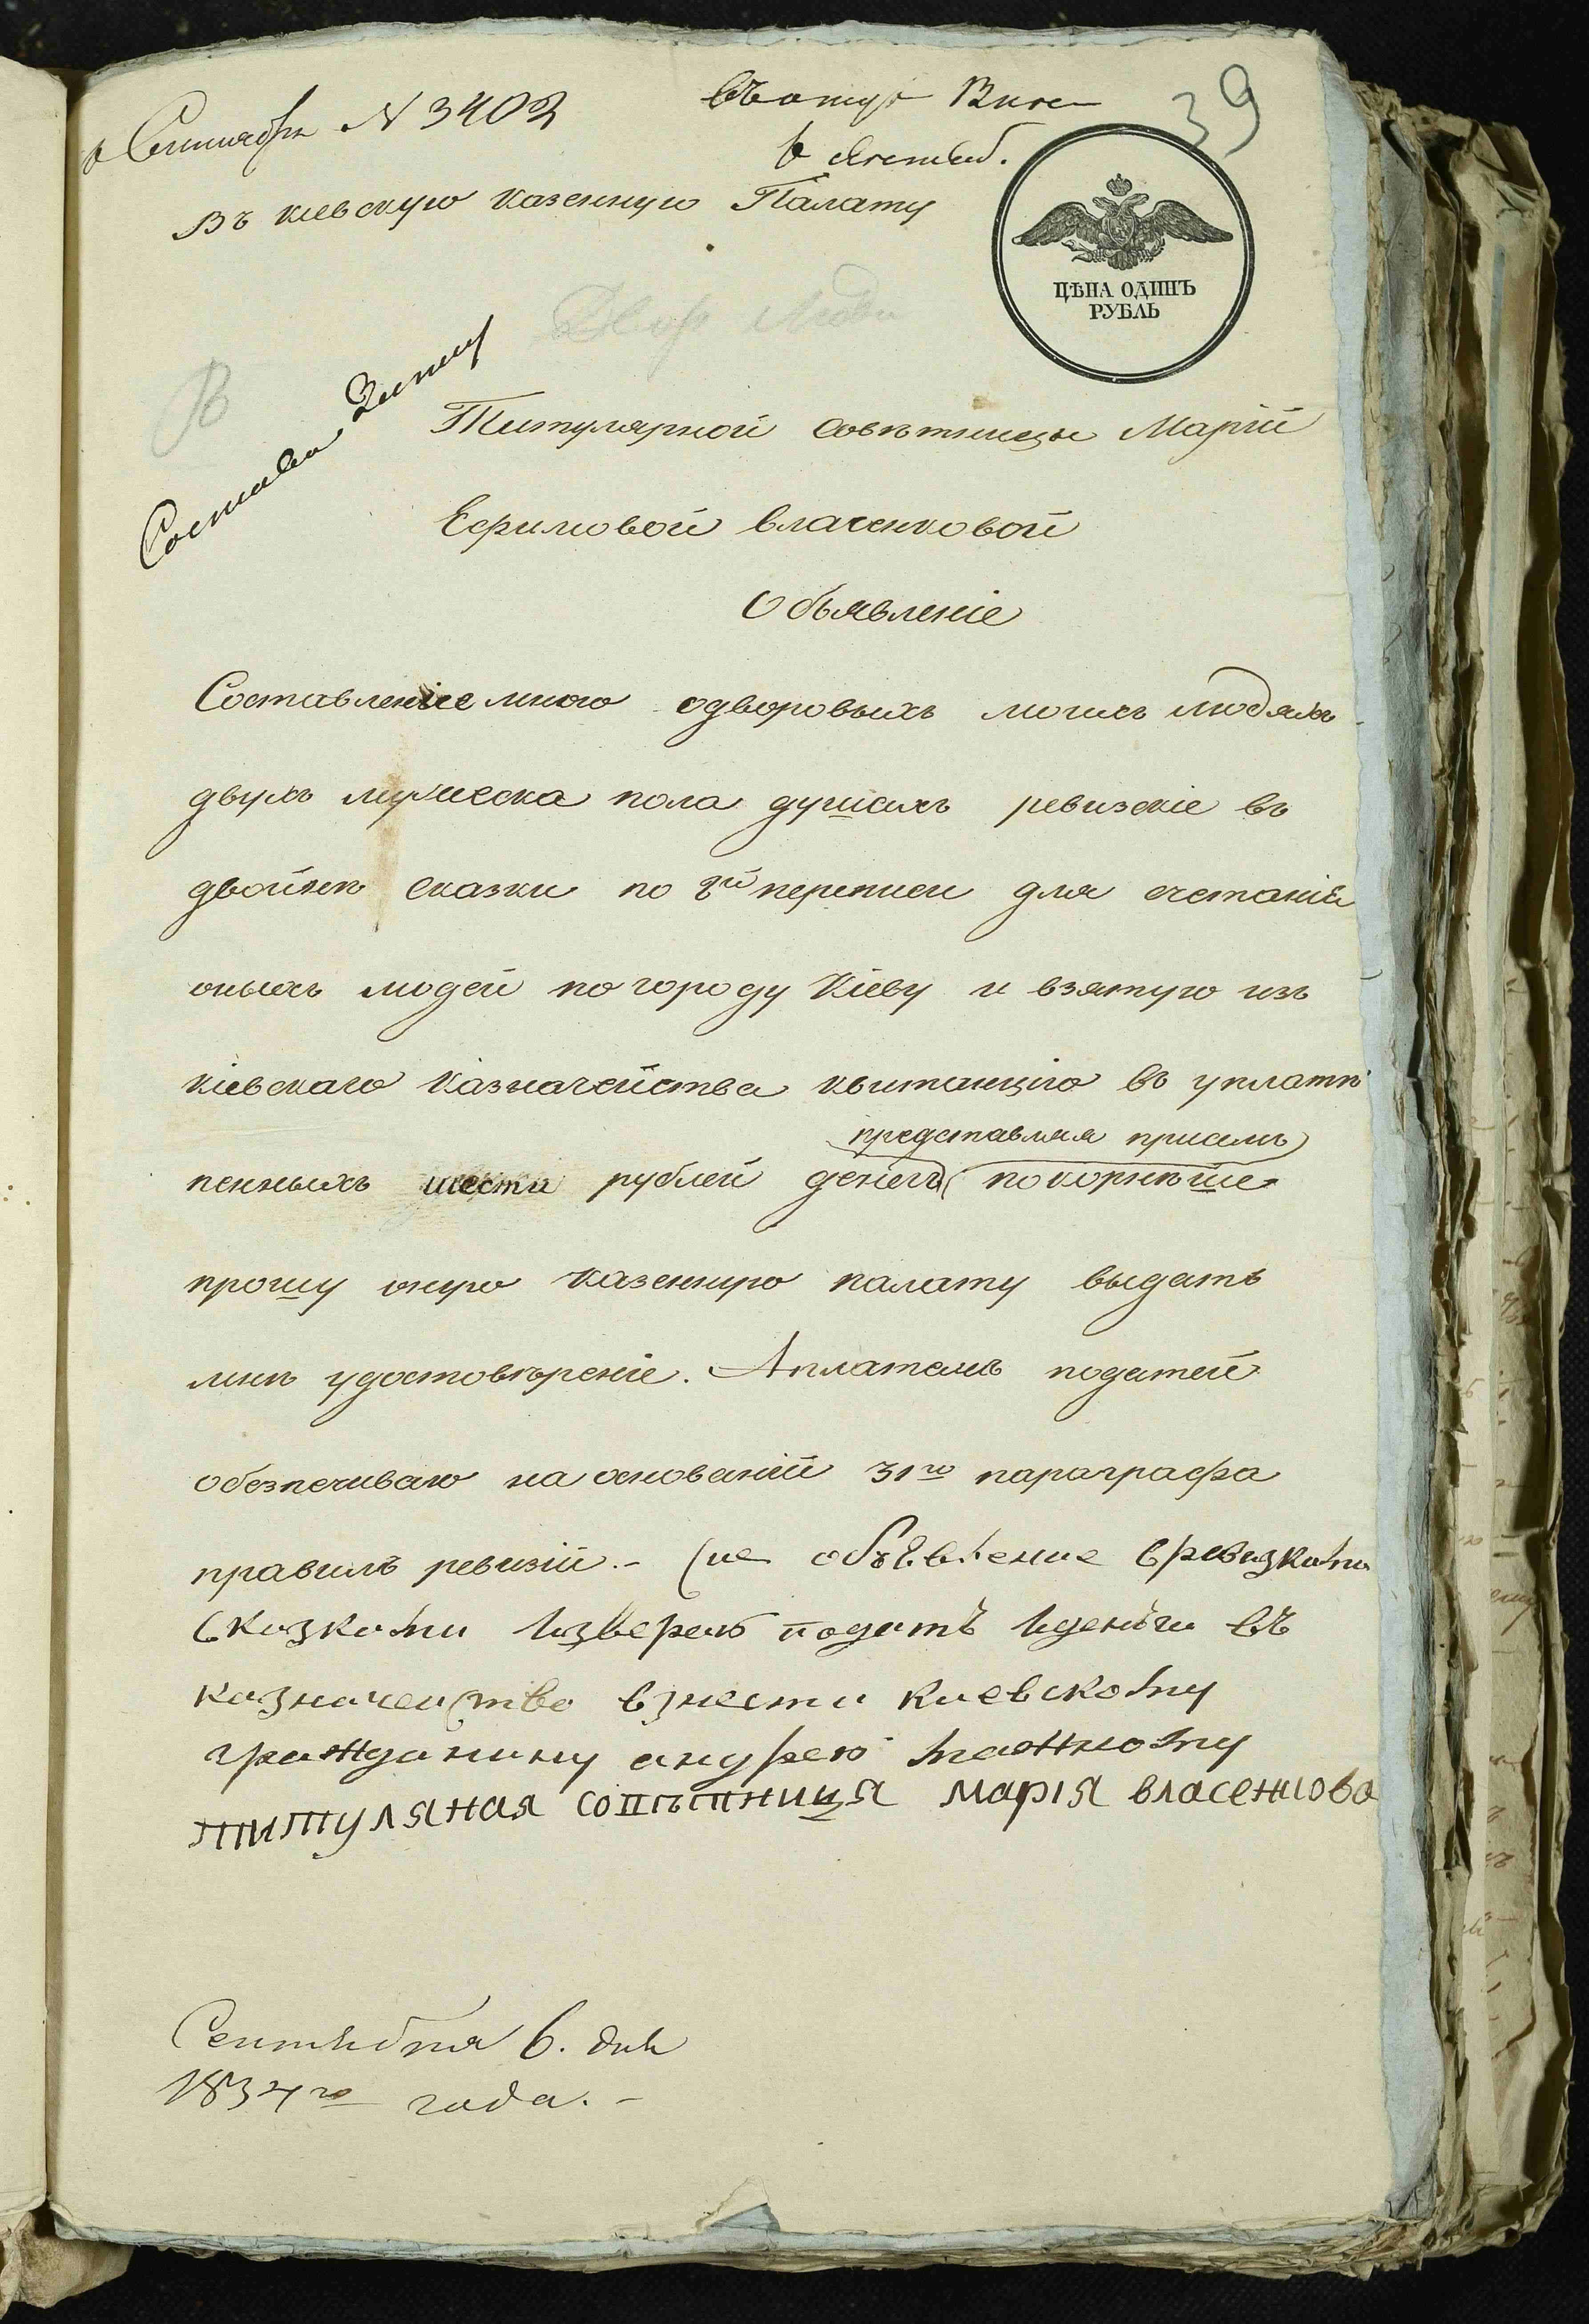 Сентября N 3402
39
Въ кіевскую казенную Палату
ЦѢНА ОДИНЪ
РУБЛЬ
Титулярной совѣтницы Маріи
Ефимовой Власенковой
Объявленіе
Составленіе мною о дворовыхъ моихъ людяхъ
двухъ мужеска пола душахъ ревизскіе въ
двойнѣ сказки по 8й переписи для счетанія
оныхъ людей по городу Кіеву и взятую изъ
кіевскаго казначейства квитанцію въ уплатѣ
представляя присемъ
пенныхъ шести рублей денегъ покорнѣше
прошу оную казенную палату выдать
мнѣ удостовѣреніе. Аплатежъ податей
обезпечиваю на основаніи 31го параграфа
правилъ ревизіи.- Сие объевление сревизкими
Сказками изверель подать иденьги въ
казначейство взнести киевскому
гражданину андрею
титуляная совѣтница марія власенкова
Сентября 6. дня
1834го года.-